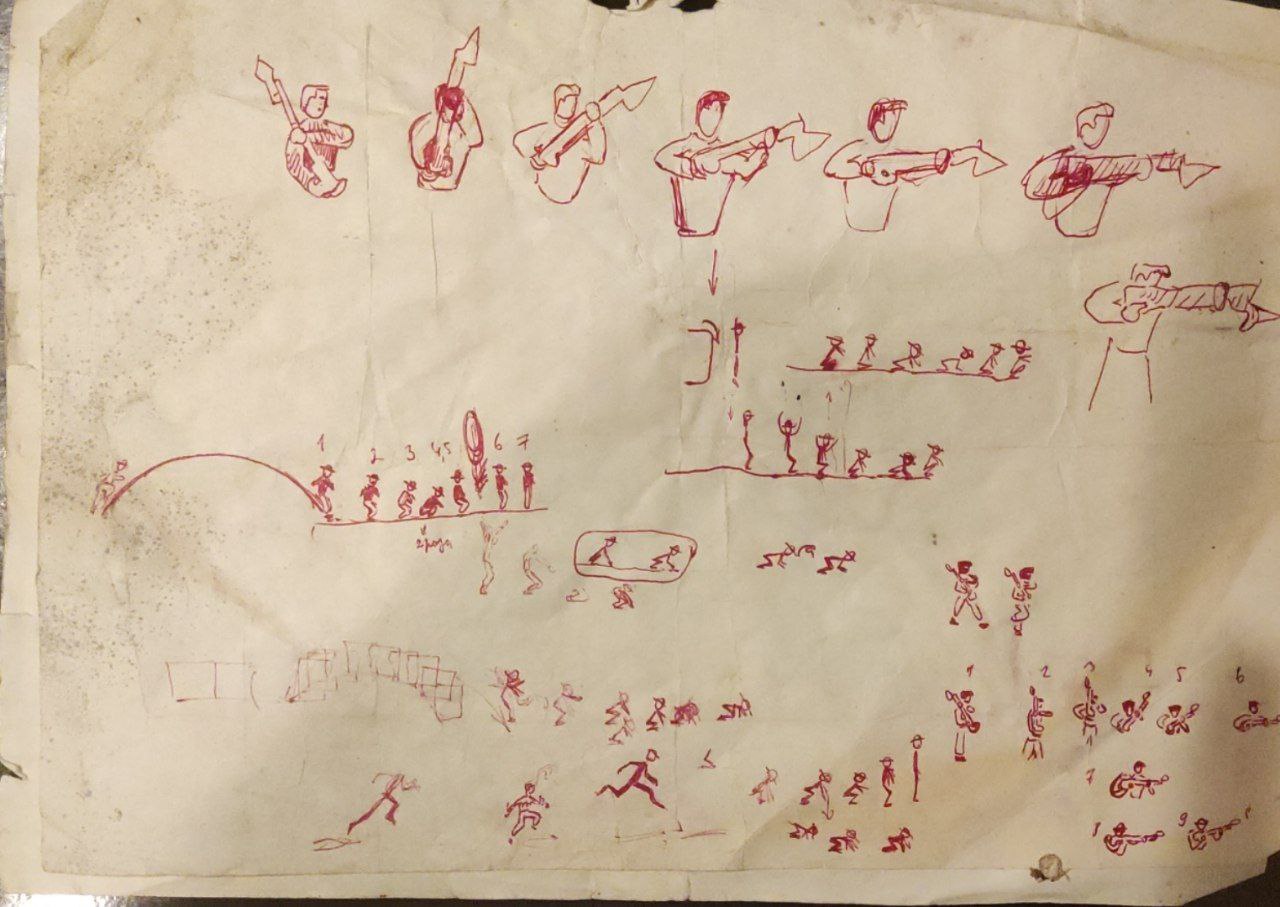 1 2 3 4,5 6 7
2 раза
1 2 3 4 5 6
7
8 9